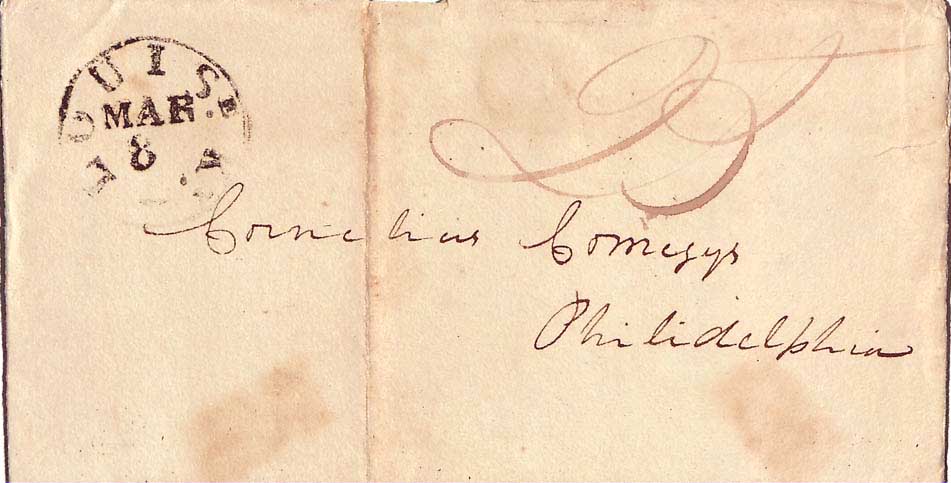 LOUIS
MAR
8
25
Cornelius Comegys
Philidelphia